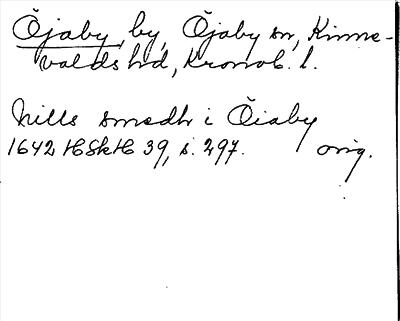 Öjaby, by, Öjaby sn, Kinne-
valds hd, Kronob. l.
Nills smedh i Öiaby
1642 HSkH 39, s. 297. orig.